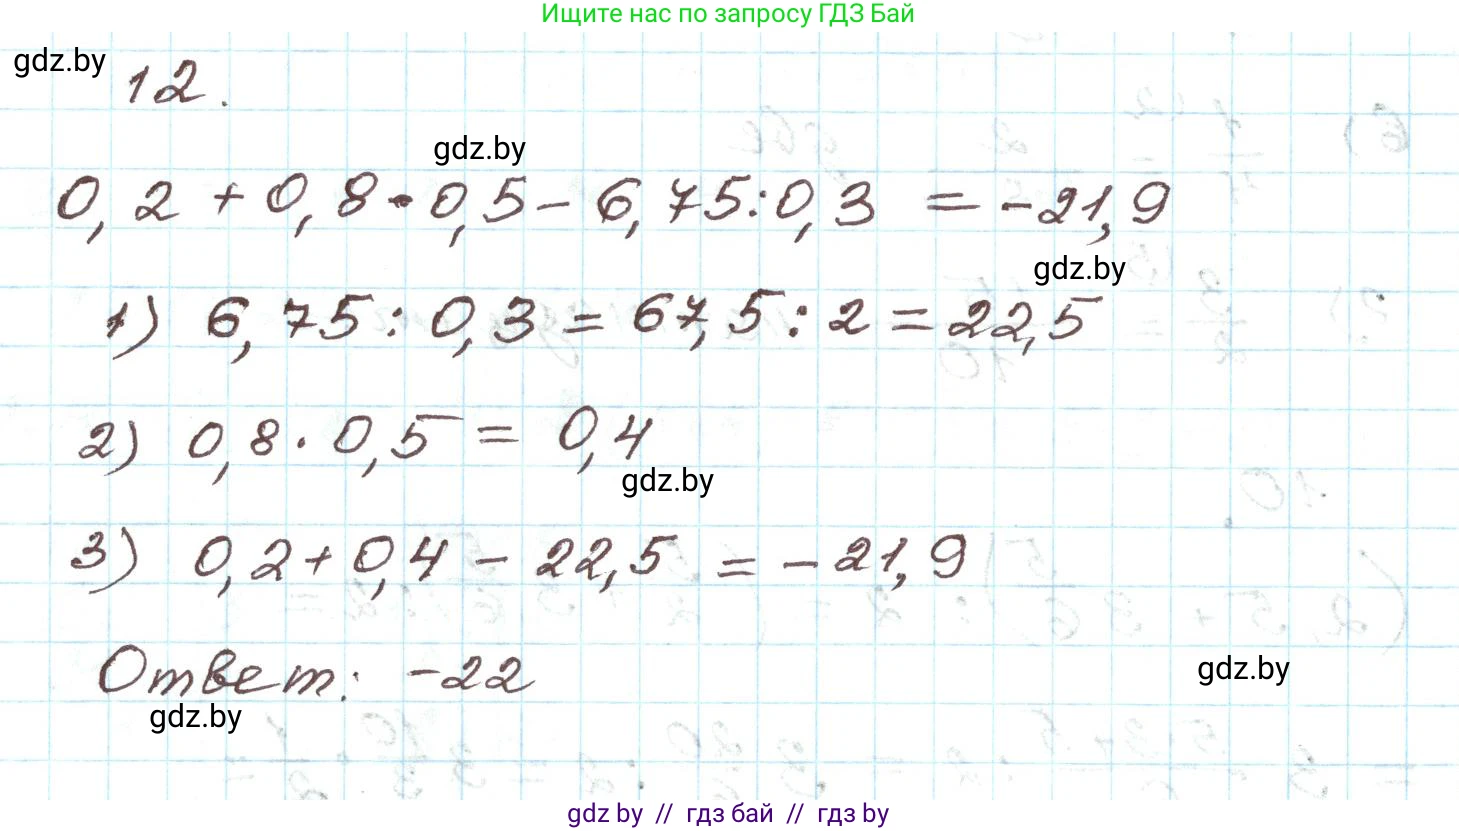 Ищите нас по запросу ГДЗ Бай
gdz.by
12.
gdz.by
0,2 + 0,8 · 0,5 - 6,75 : 0,3 = -21,9
gdz.by
1) 6,75 : 0,3 = 67,5 : 2 = 22,5
2) 0,8 · 0,5 = 0,4
gdz.by
3) 0,2 + 0,4 - 22,5 = -21,9
Ответ: -22
gdz.by
gdz.by
gdz by // гдз бай // гдз by